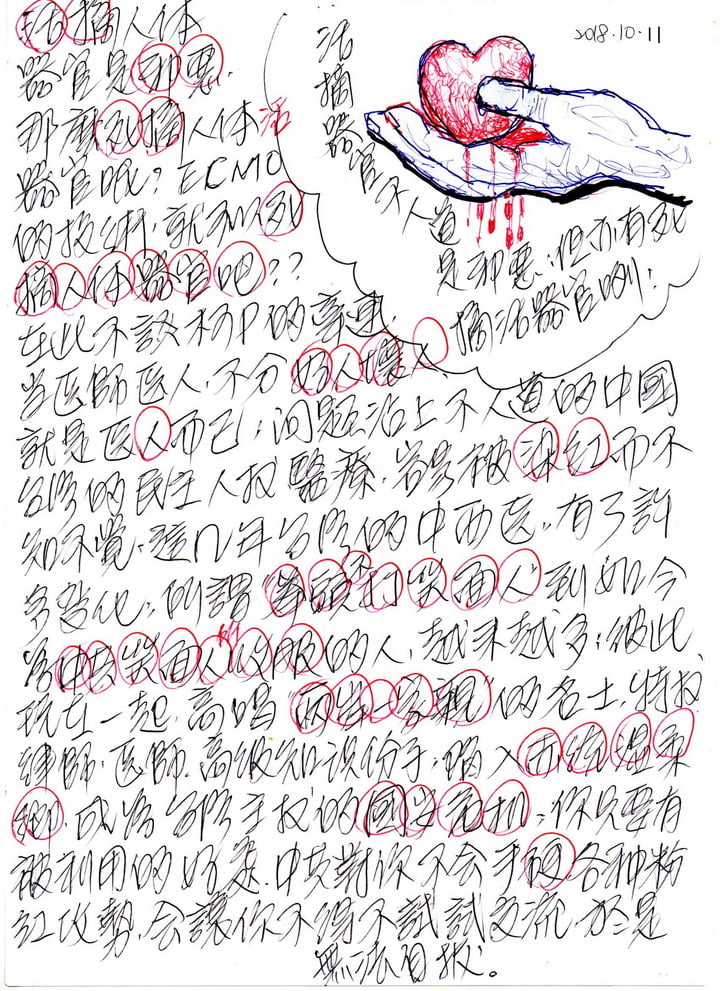 2018.10.11
活摘器官不人道
是邪惡;但亦有死
摘活器官咧;
活摘人体
器官是邪惡.
那麼死摘人体活
器官呢?ECMO
的技術,就和以死
摘人体器官吧??
在此不談柯P的
當医師医人,不分好人壞人
就是医人而已;问題 不人道的中國
台湾的民主人权醫療,若是被 红而不
知不覺,這几年台湾的中西医,有了許
多变化,所謂"拳頭不打笑面人"到如今
為中共笑面人所收服的人,越来越多;彼此
玩在一起,高唱"両岸一家親"的名士,特权
律師.医師.高級知识份子,踏入 温柔
鄉,成為台湾主权的國安危机;你只要有
被利用的好處.中共對你不会手硬,各种粉
红攻勢,会讓你不得不試試交流,於是
無法自拔。